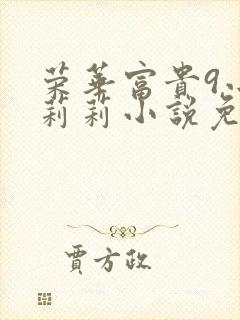 荣華富貴9
莉莉小説免
賈方政